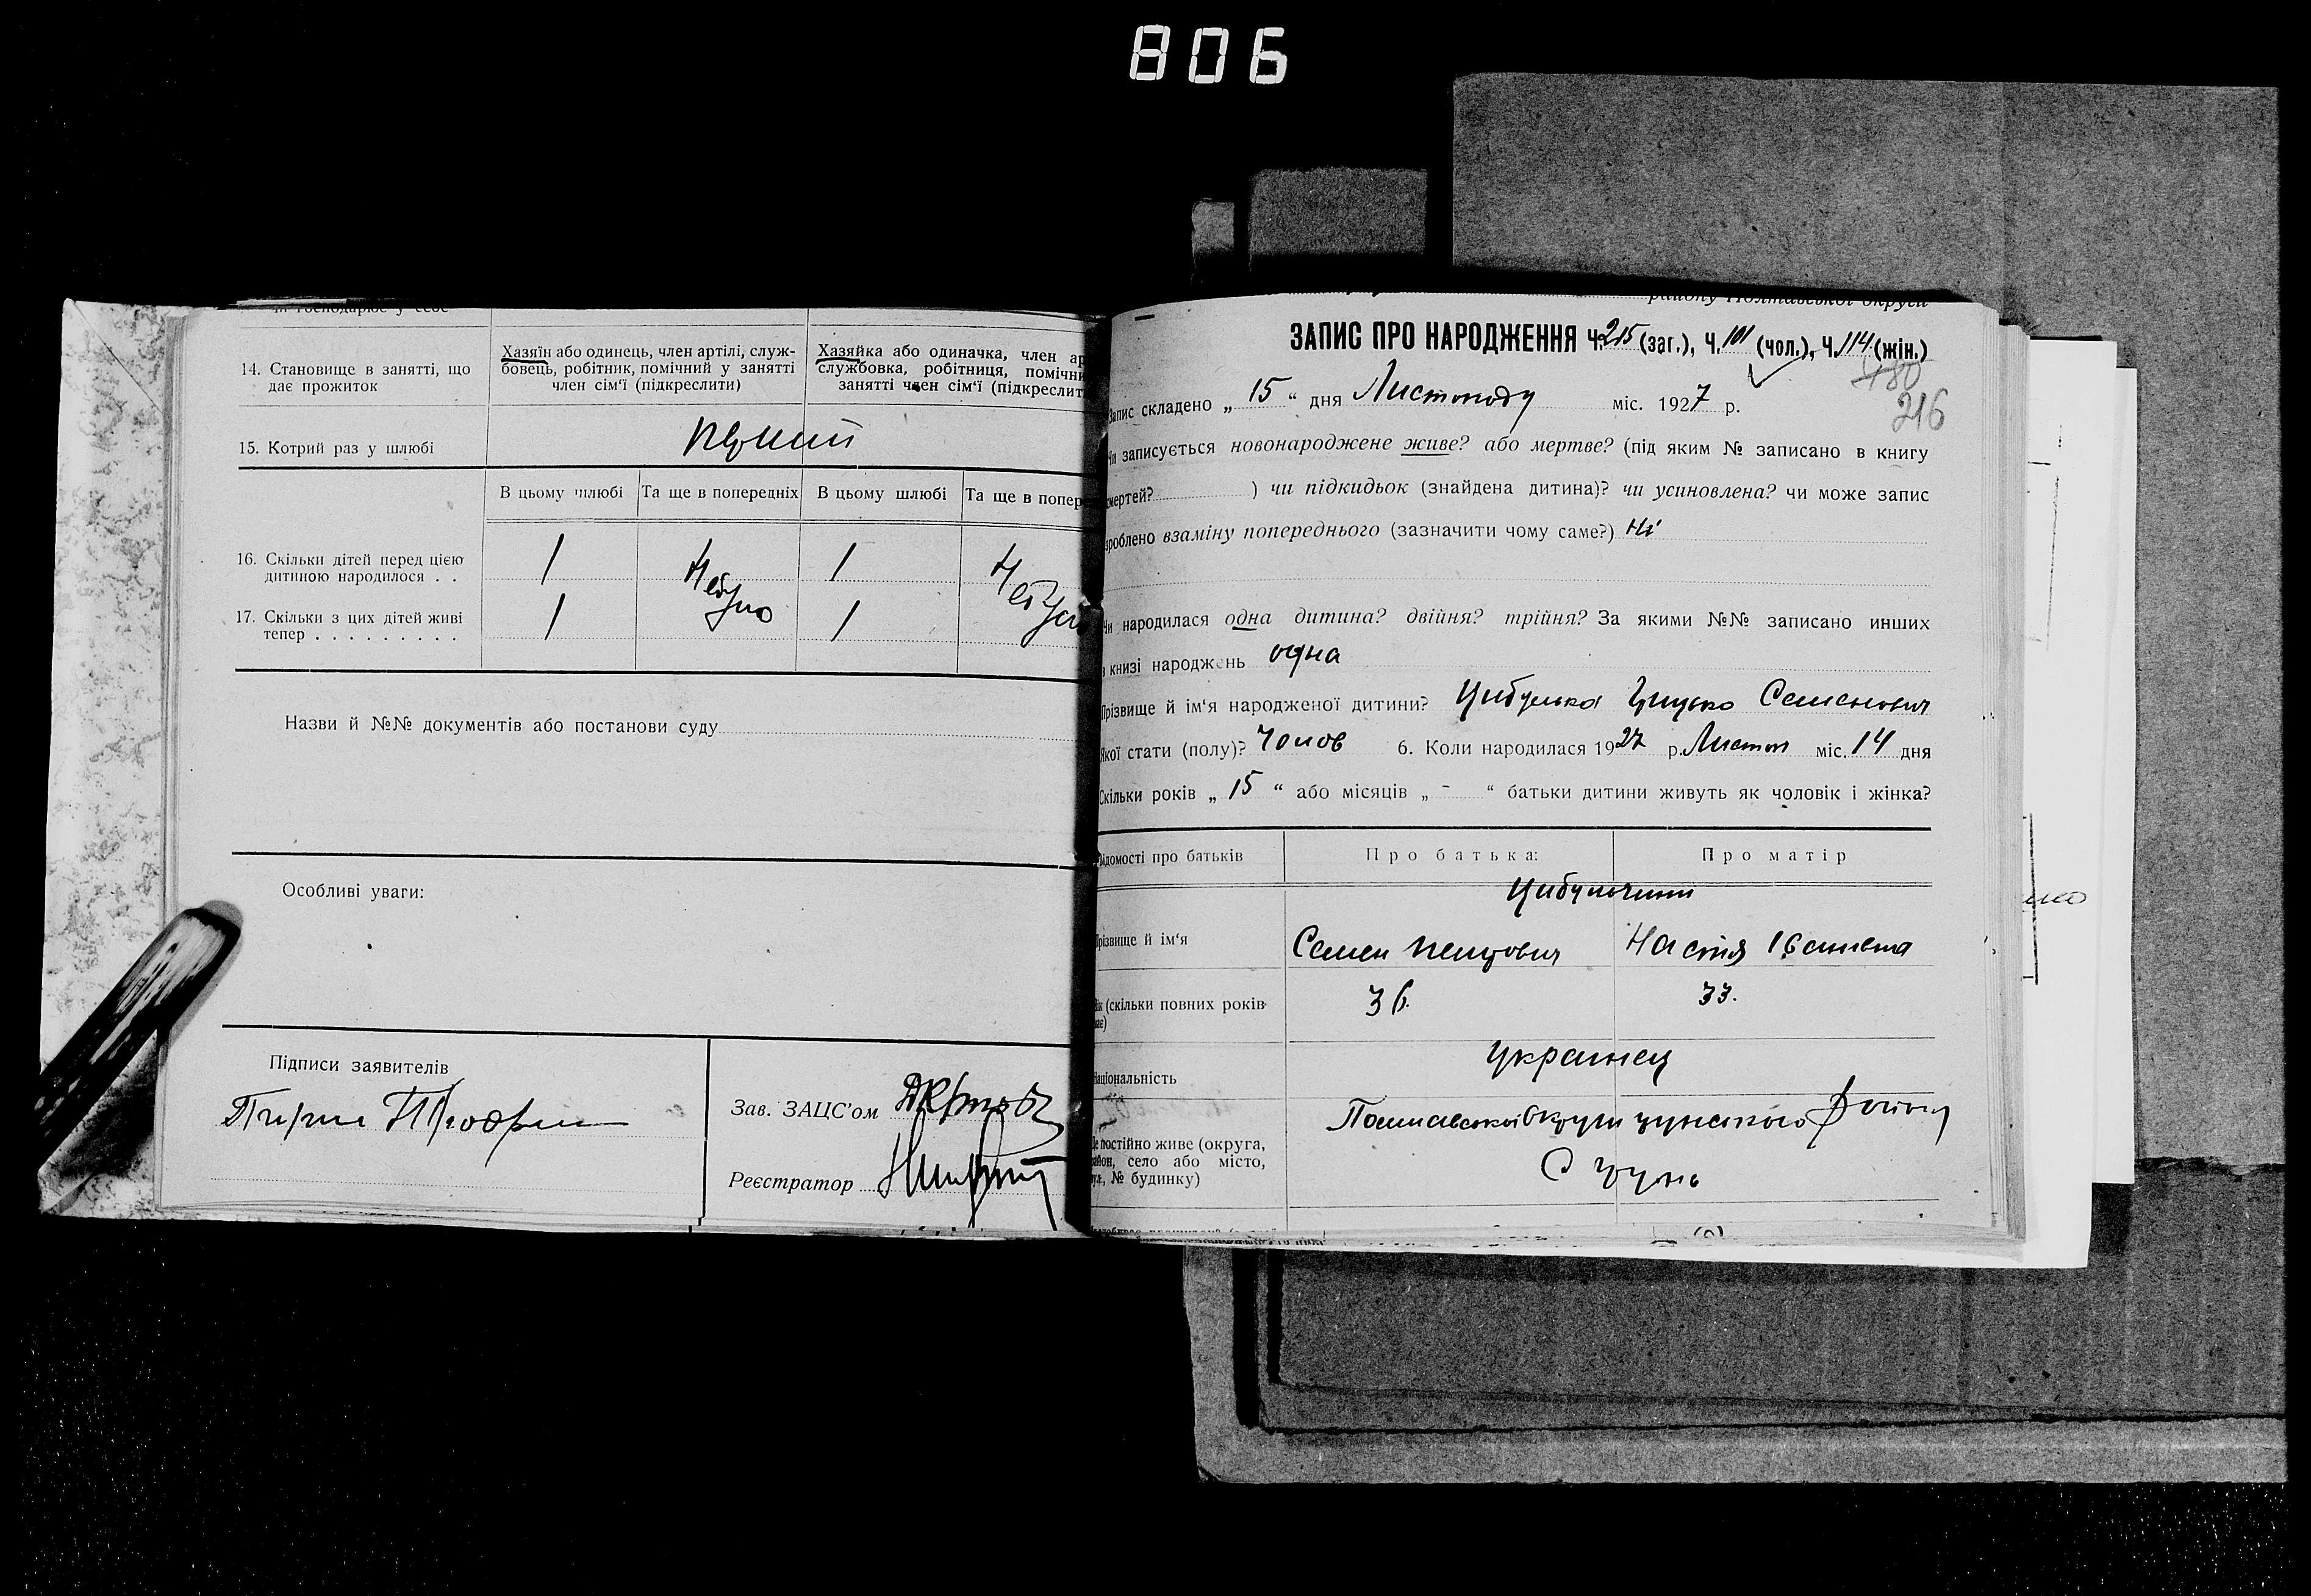 806
14. Становище в занятті, що дає прожиток
Хазяїн або одинець, член артілі, служ-
бовець, робітник, помічний у занятті
член сім'ї (підкреслити)
Хазяйка або одиначка, член ар
службовка, робітниця, помічни
занятті член сім'ї (підкреслит
15. Котрий раз у шлюбі
перший
В цьому шлюбі Та ще в попередніх В цьому шлюбі Та ще в попер
16. Скільки дітей перед цією
дитиною народилося . .
1 Небуло 1
17. Скільки з цих дітей живі
тепер . . . . . . . . .
1 1
Назви й №№ документів або постанови суду
Особливі уваги:
Підписи заявителів
Зав. ЗАЦС'ом
Реєстратор
району Полтавської округи
ЗАПИС ПРО НАРОДЖЕННЯ Ч. 215 (заг.), Ч. 101 (чол.), Ч. 114 (жін.)
180
216
Запис складено „ 15 “ дня Листопаду міс. 1927 р.
Чи записується новонароджене живе? або мертве? (під яким № записано в книгу
смертей? ) чи підкидьок (знайдена дитина)? чи усиновлена? чи може запис
зроблено взаміну попереднього (зазначити чому саме?) Ні
Чи народилася одна дитина? двійня? трійня? За якими №№ записано инших
в книзі народжень одна
Прізвище й ім'я народженої дитини? Цибулька Грицько Семенович
Якої стати (полу)? Чолов 6. Коли народилася 1927 р. Листоп міс. 14 дня
Скільки років „ 15 “ або місяців „ - “ батьки дитини живуть як чоловік і жінка?
Відомості про батьків Про батька: Про матір
Прізвище й ім'я
Семен Петрович Настя Івановна
Вік (скільки повних років має)
36. 33.
Національність
Українец
Де постійно живе (округа,
район, село або місто,
вул., № будинку)
Полтавської округи